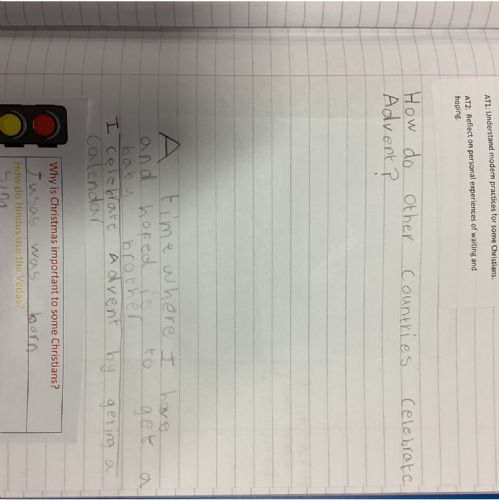 AT1: Understand modern practices for some Christians.
AT2: Reflect on personal experiences of waiting and
hoping.
How do other Countries Celebrate
Advent?
A time where I have
and hoped is to get a
baby brother
I celebrate Advent by geting a
Calendar
Why is Christmas important to some Christians?
Jusas was born
How do Hindus use the Vedas?